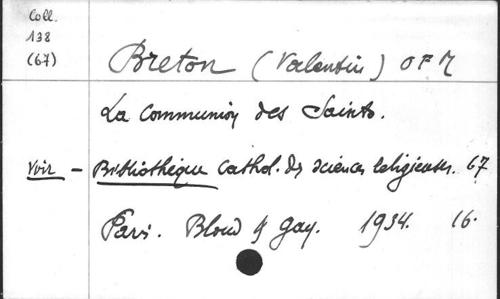 Coll.
138
(67)
Breton (Valentin) OFM
La Communion des Saints.
Voir - Bibliothèque Cathol. des sciences religieuses. 67
Paris. Bloud & Gay. 1934. 16.